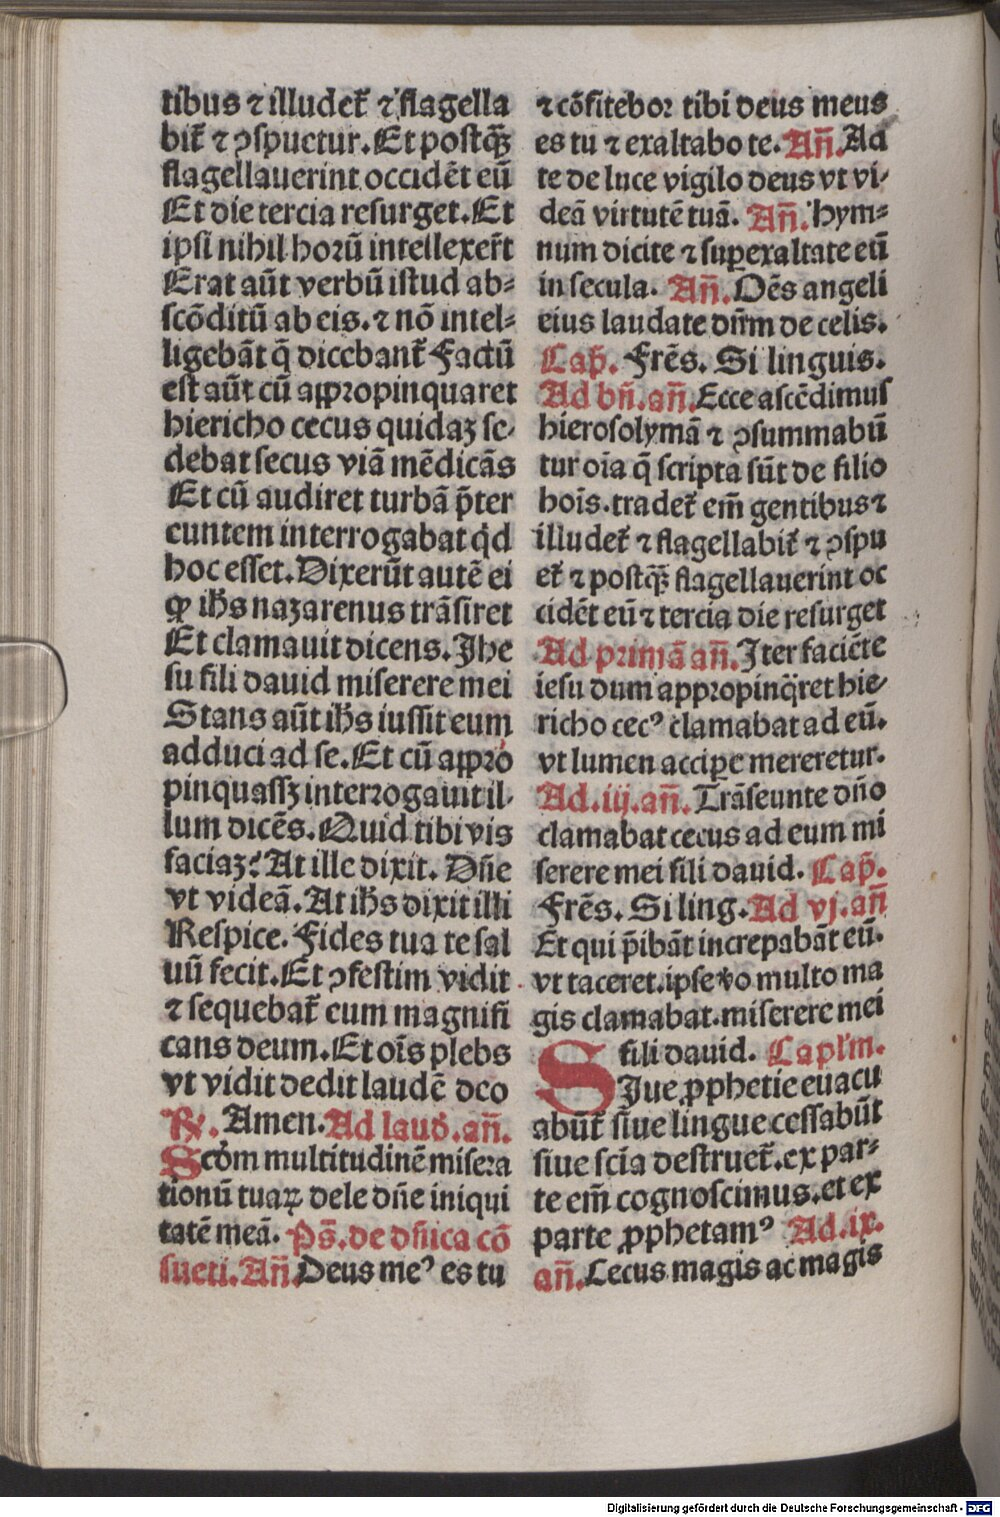 tibus ⁊ illudet᷑ ⁊ flagella
bit᷑ ⁊ ꝯspuetur. Et postq̄ꝫ
flagellauerint occidēt eū
Et die tercia resurget. Et
ipsi nihil horū intellexer̄t
Erat aūt verbū istud ab⸗
scōditū ab eis. ⁊ nō intel⸗
ligebāt q̄ dicebant᷑ Factū
est aūt cū appropinquaret
hiericho cecus quidaꝫ se⸗
debat secus viā mēdicās
Et cū audiret turbā p̄ter
euntem interrogabat qͥd
hoc esset. Dixerūt autē ei
ꝙ ihs̄ nazarenus trāsiret
Et clamauit dicens. Ihe
su fili dauid miserere mei
Stans aūt ihs̄ iussit eum
adduci ad se. Et cū appro
pinquassꝫ interrogauit il⸗
lum dicēs. Quid tibi vis
faciaꝫ? At ille dixit. Dn̄e
vt videā. At ihs̄ dixit illi
Respice. Fides tua te sal
uū fecit. Et ꝯfestim vidit
⁊ sequebat᷑ eum magnifi
cans deum. Et oīs plebs
vt vidit dedit laudē deo
℟. Amen. Ad laud̓. an̄.
Scd̓m multitudinē misera
tionū tuaꝝ dele dn̄e iniqui
tatē meā. Ps̄. de dn̄ica cō
sueti. An̄. Deus meꝰ es tu
⁊ cōfitebor tibi deus meus
es tu ⁊ exaltabo te. An̄. Ad
te de luce vigilo deus vt vi⸗
deā virtutē tuā. An̄. hym⸗
num dicite ⁊ suꝑexaltate eū
in secula. An̄. Oēs angeli
eius laudate dn̄m de celis.
Cap̄. Frēs. Si linguis.
Ad bn̄. an̄. Ecce ascēdimus
hierosolymā ⁊ ꝯsummabū
tur oīa q̄ scripta sūt de filio
hoīs. tradet᷑ em̄ gentibus ⁊
illudet᷑ ⁊ flagellabit᷑ ⁊ ꝯspu
et᷑ ⁊ postq̄ꝫ flagellauerint oc
cidēt eū ⁊ tercia die resurget
Ad primā an̄. Iter faciēte
iesu dum appropinq̈ret hie⸗
richo cecꝰ clamabat ad eū.
vt lumen acciꝑe mereretur.
Ad .iij. an̄. Trāseunte dn̄o
clamabat cecus ad eum mi
serere mei fili dauid. Cap̄.
Frēs. Si ling. Ad vj. an̄
Et qui p̄ibāt increpabāt eū.
vt taceret. ipse v̓o multo ma
gis clamabat. miserere mei
fili dauid. Capl̓m.
Siue ꝓphetie euacu
abūt᷑ siue lingue cessabūt
siue scīa destruet᷑. ex par⸗
te em̄ cognoscimus. et ex
parte ꝓphetamꝰ Ad .ix.
an̄. Cecus magis ac magis
Digitalisierung gefördert durch die Deutsche Forschungsgemeinschaft - DFG